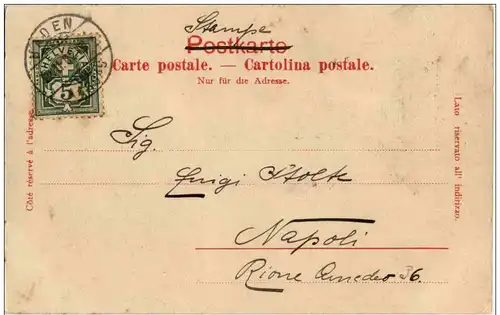 Stampe
Postkarte
Carte postale. — Cartolina postale.
Nur für die Adresse.
HELVETIA
5
Côté réservé à l'adresse.
Lato riservato all' indirizzo.
Sig.
Luigi Stolte
Napoli
Rione Amedeo 36.